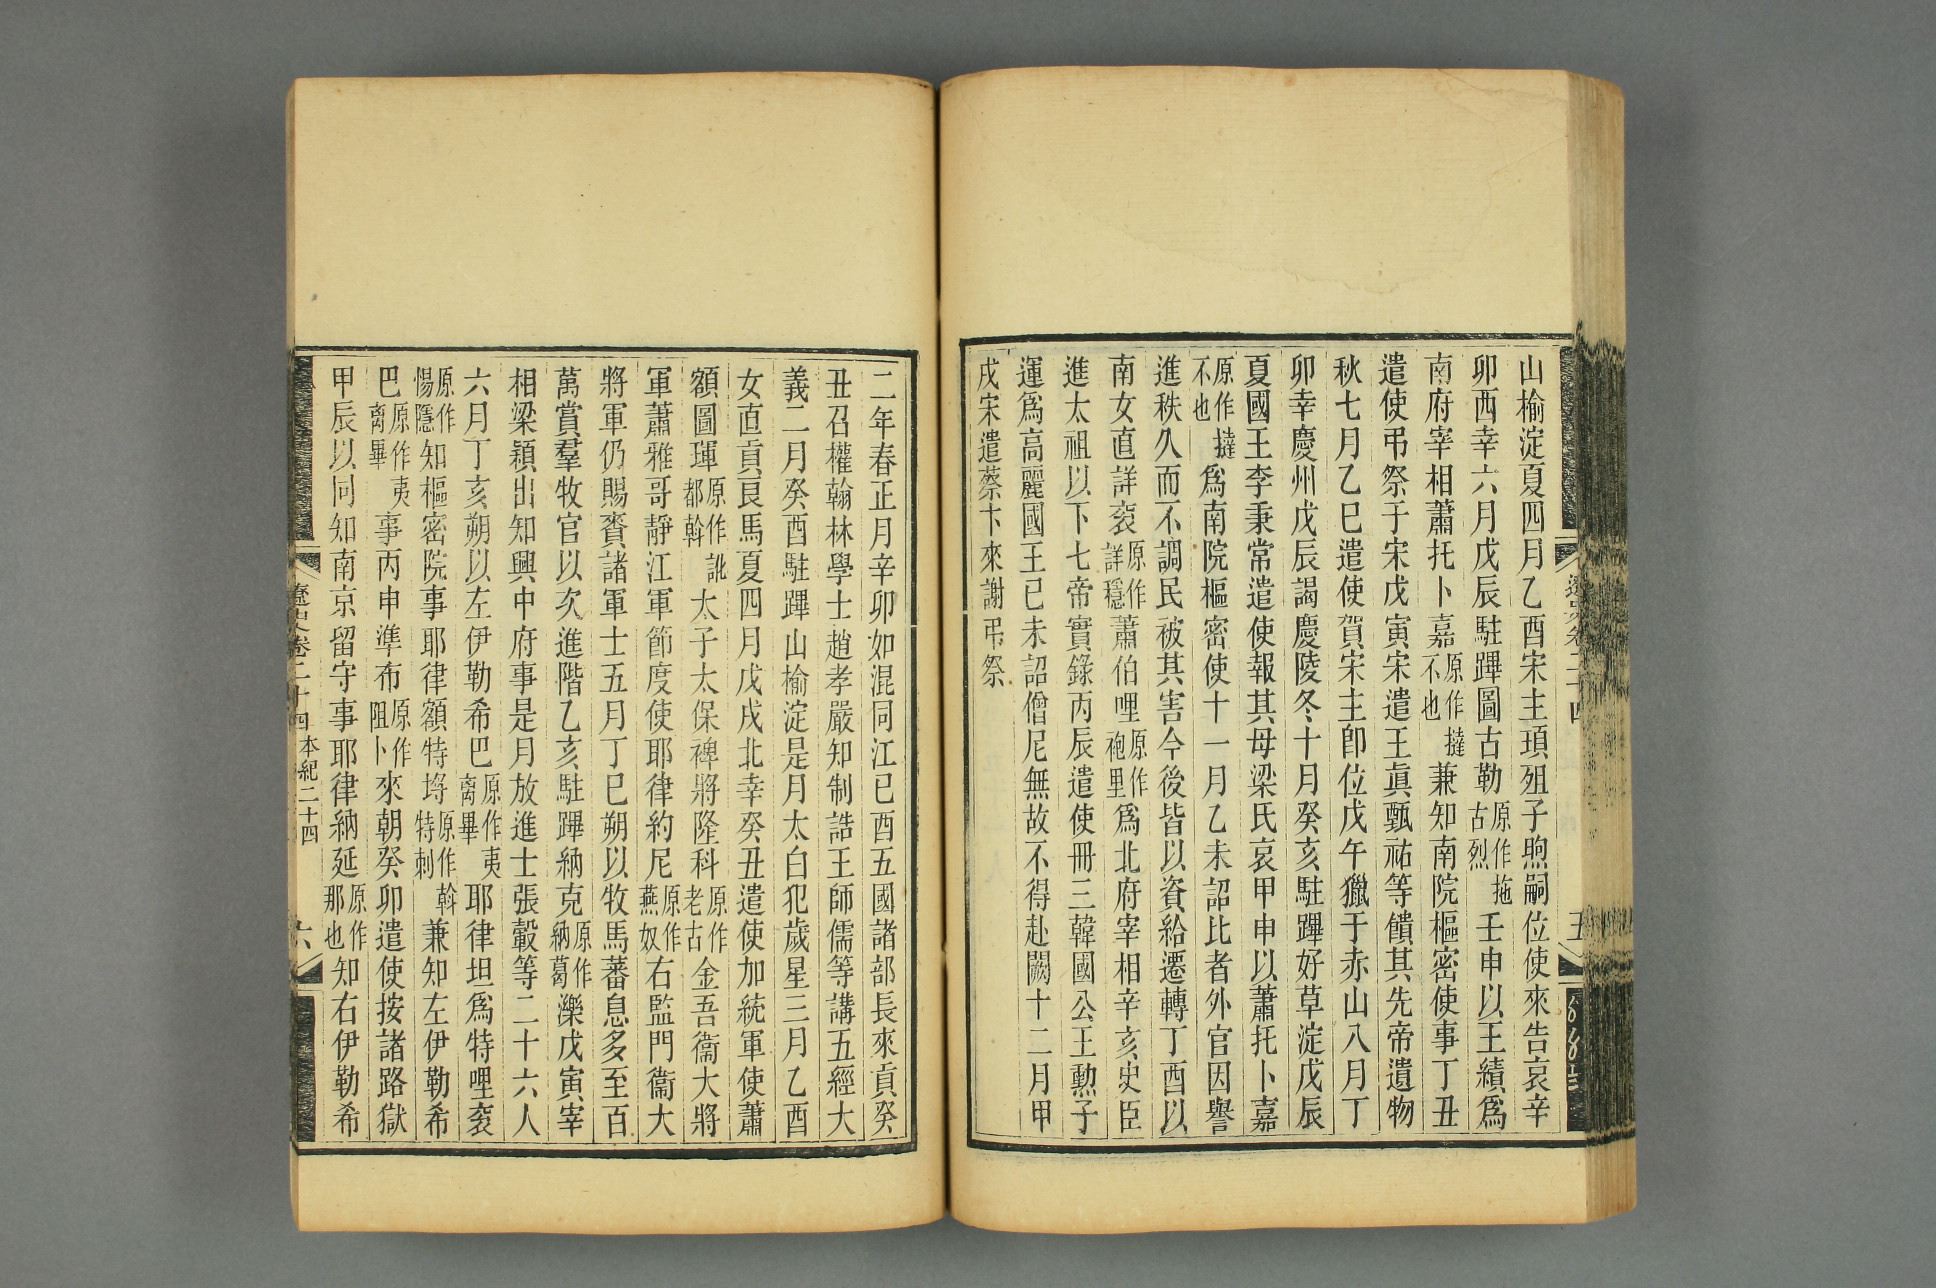 山榆淀夏四月乙酉宋主頊殂子煦嗣位使來告哀辛
卯西幸六月戊辰駐蹕圖古勒原作拖古烈壬申以王績爲
南府宰相蕭托卜嘉原作撻不也兼知南院樞密使事丁丑
遣使弔祭于宋戊寅宋遣王眞甄祐等饋其先帝遺物
秋七月乙巳遣使賀宋主卽位戊午獵于赤山八月丁
卯幸慶州戊辰謁慶陵冬十月癸亥駐蹕好草淀戊辰
夏國王李秉常遣使報其母梁氏哀甲申以蕭托卜嘉
原作撻不也爲南院樞密使十一月乙未詔比者外官因譽
進秩久而不調民被其害今後皆以資給遷轉丁酉以
南女直詳袞原作詳穩蕭伯哩原作袍里爲北府宰相辛亥史臣
進太祖以下七帝實錄丙辰遣使冊三韓國公王勲子
運爲高麗國王已未詔僧尼無故不得赴闕十二月甲
戌宋遣蔡卞來謝弔祭
二年春正月辛卯如混同江已酉五國諸部長來貢癸
丑召權翰林學士趙孝嚴知制誥王師儒等講五經大
義二月癸酉駐蹕山榆淀是月太白犯歲星三月乙酉
女直貢良馬夏四月戊戌北幸癸丑遣使加統軍使蕭
額圖琿原作訛都斡太子太保裨將隆科原作老古金吾衞大將
軍蕭雅哥靜江軍節度使耶律約尼原作燕奴右監門衞大
將軍仍賜賚諸軍士五月丁巳朔以牧馬蕃息多至百
萬賞羣牧官以次進階乙亥駐蹕納克原作納葛濼戊寅宰
相梁穎出知興中府事是月放進士張轂等二十六人
六月丁亥朔以左伊勒希巴原作夷离畢耶律坦爲特哩袞
原作惕隱知樞密院事耶律額特埒原作斡特刺兼知左伊勒希
巴原作夷离畢事丙申準布原作阻卜來朝癸卯遣使按諸路獄
甲辰以同知南京留守事耶律納延原作那也知右伊勒希
遼史卷二十四 本紀二十四 六